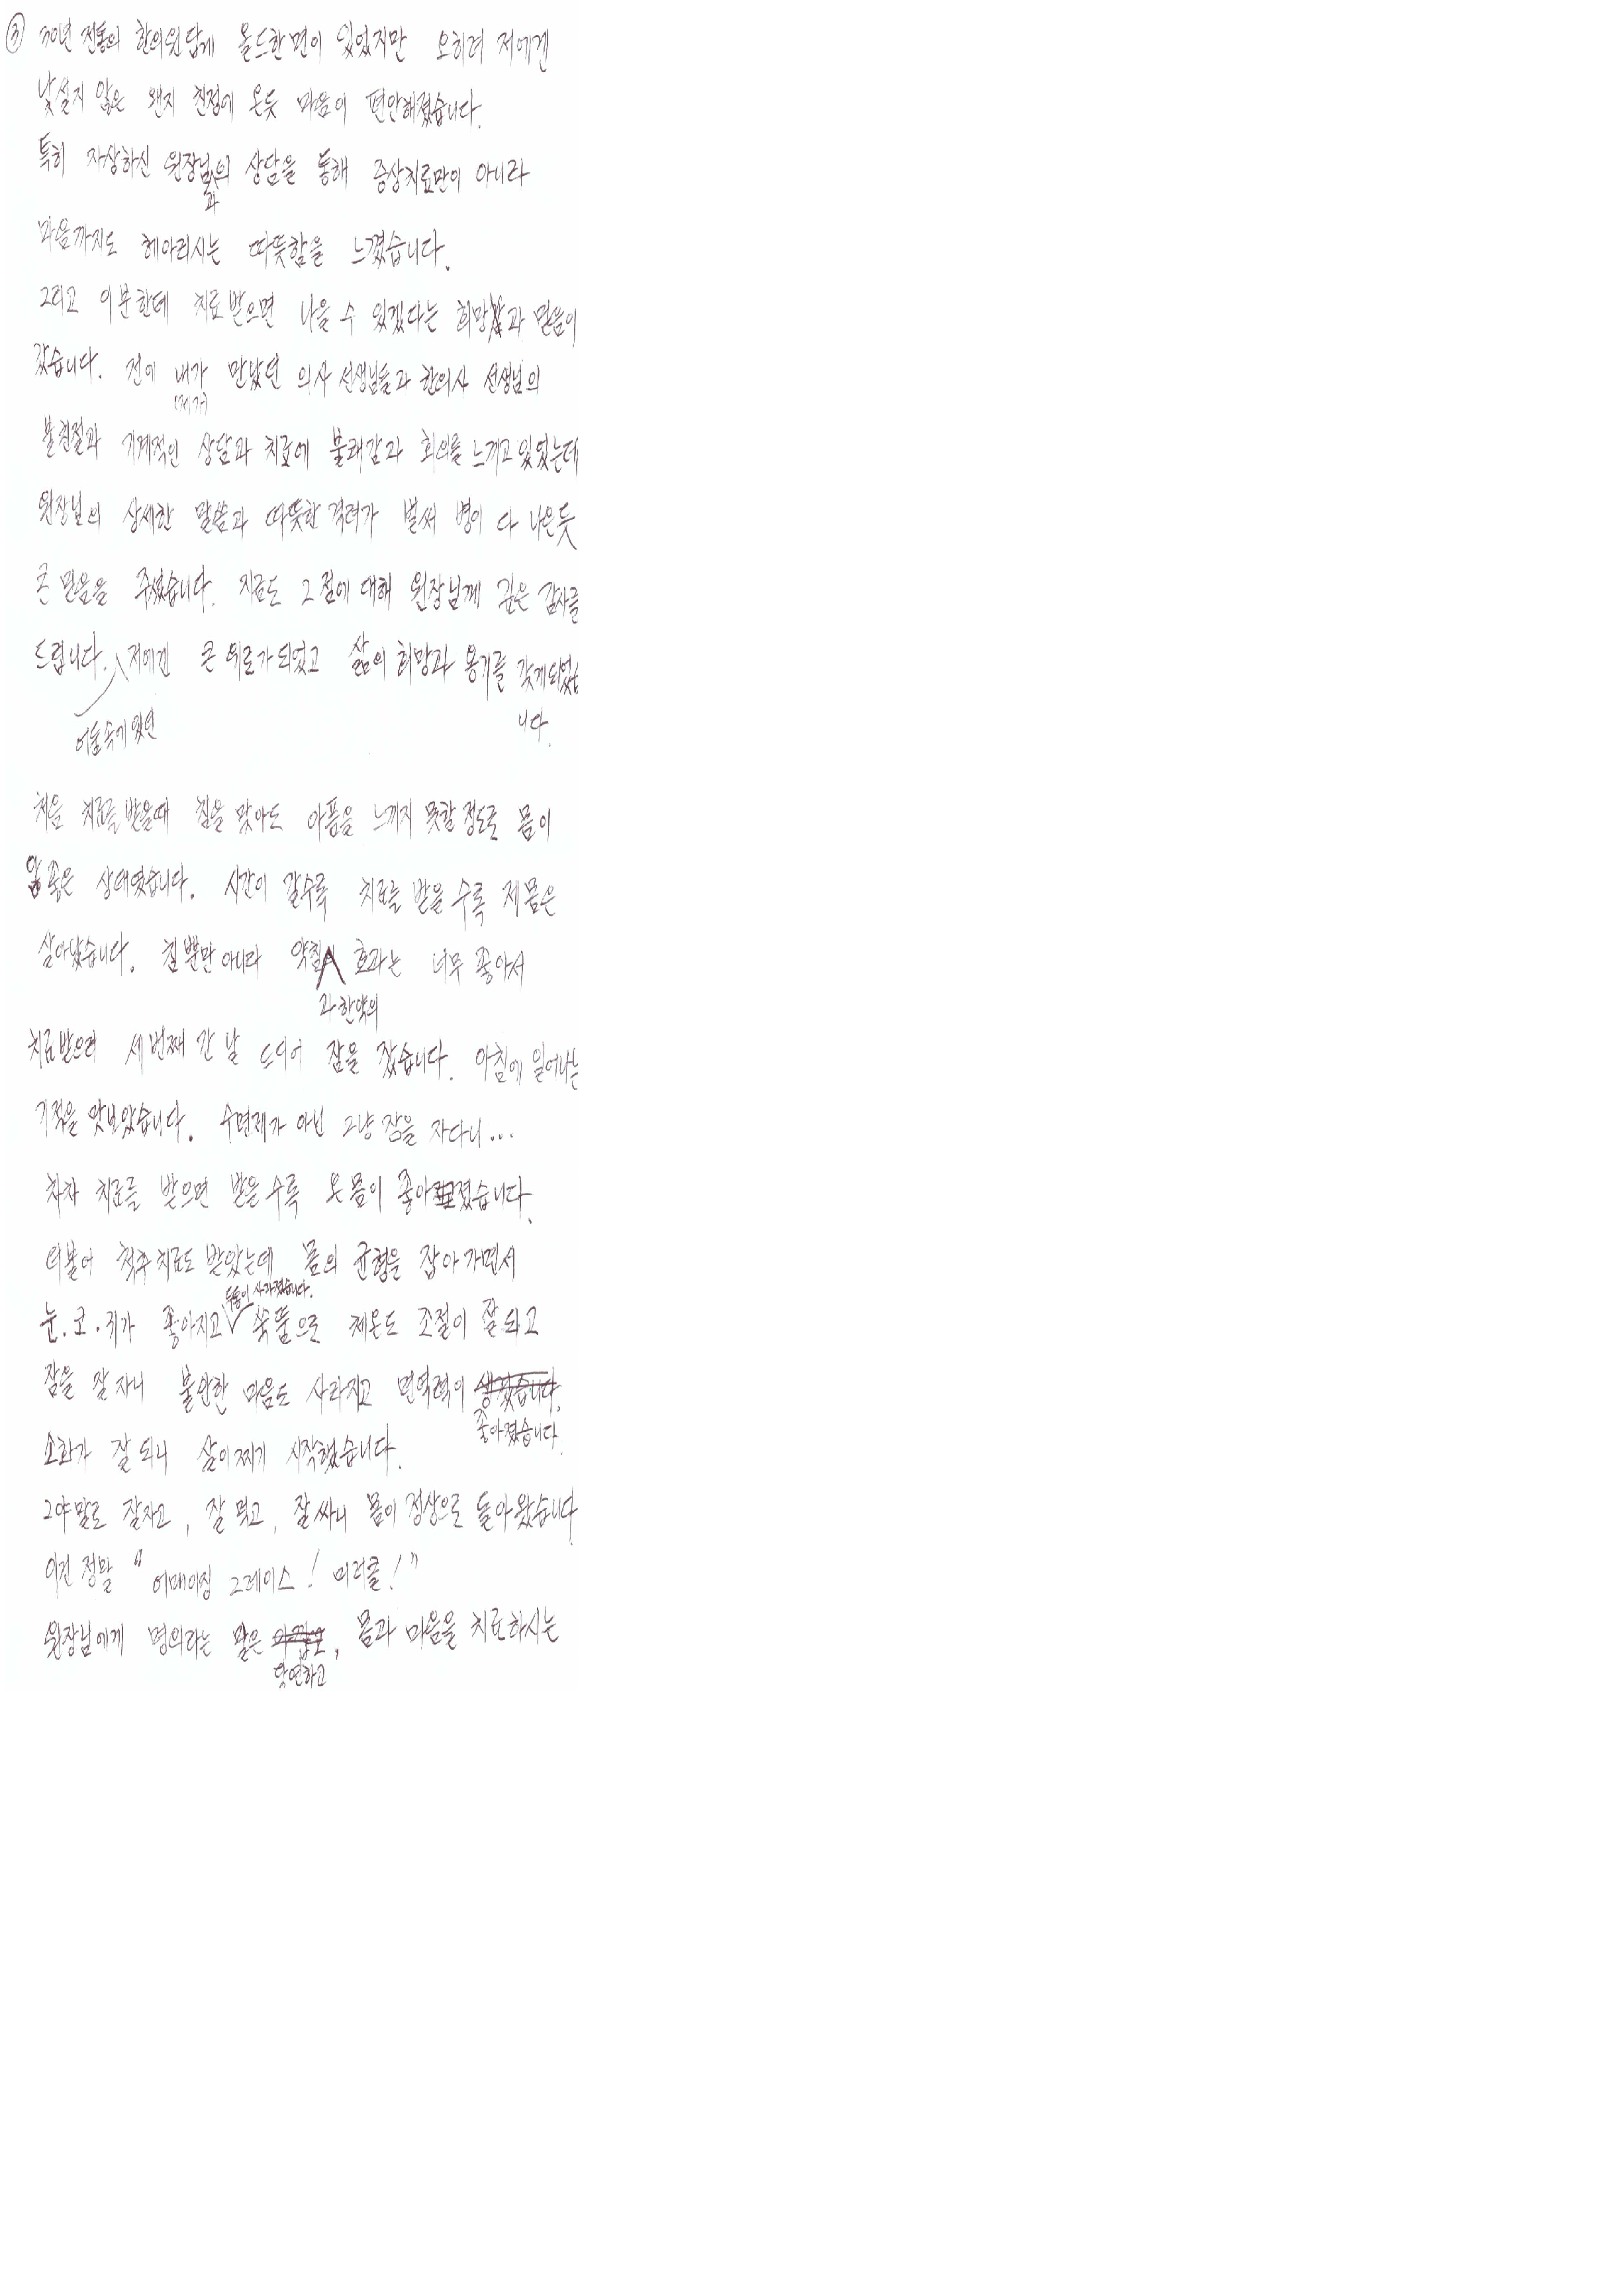 ③ 30년 전통의 한의원 답게 올드한 면이 있었지만 오히려 저에겐
낯설지 않은 왠지 친정에 온듯 마음이 편안해졌습니다.
특히 자상하신 원장님의 상담을 통해 증상치료만이 아니라
과
마음까지도 헤아리시는 따뜻함을 느꼈습니다.
그리고 이분한데 치료받으면 나을 수 있겠다는 희망과 믿음이
갔습니다. 전에 내가 만났던 의사 선생님들과 한의사 선생님의
불친절과 기계적인 상담과 치료에 불쾌감과 회의를 느끼고 있었는데
원장님의 상세한 말씀과 따뜻한 격려가 벌써 병이 다 나은듯
큰 믿음을 주셨습니다. 지금도 그 점에 대해 원장님께 깊은 감사를
드립니다. 저에겐 큰 위로가 되었고 삶의 희망과 용기를 갖게되었습
어둠속에 있던 니다.
처음 치료를 받을때 침을 맞아도 아픔을 느끼지 못할 정도로 몸이
안 좋은 상태였습니다. 시간이 갈수록 치료를 받을 수록 제 몸은
살아났습니다. 침 뿐만 아니라 약침 효과는 너무 좋아서
과 한약의
치료받으러 세번째 간 날 드디어 잠을 잤습니다. 아침에 일어나는
기적을 맛보았습니다. 수면제가 아닌 그냥 잠을 자다니...
차차 치료를 받으면 받을수록 온 몸이 좋아졌습니다.
더불어 척추 치료도 받았는데 몸의 균형을 잡아 가면서
두통이 사라졌습니다.
눈.코.귀가 좋아지고 쑥뜸으로 체온도 조절이 잘 되고
잠을 잘 자니 불안한 마음도 사라지고 면역력이 생겼습니다.
좋아졌습니다.
소화가 잘 되니 살이 찌기 시작했습니다.
그야말로 잘자고, 잘 먹고, 잘 싸니 몸이 정상으로 돌아왔습니다
이건 정말 "어메이징 그레이스! 미러클!"
원장님에게 명의라는 말은 , 몸과 마음을 치료하시는
당연하고